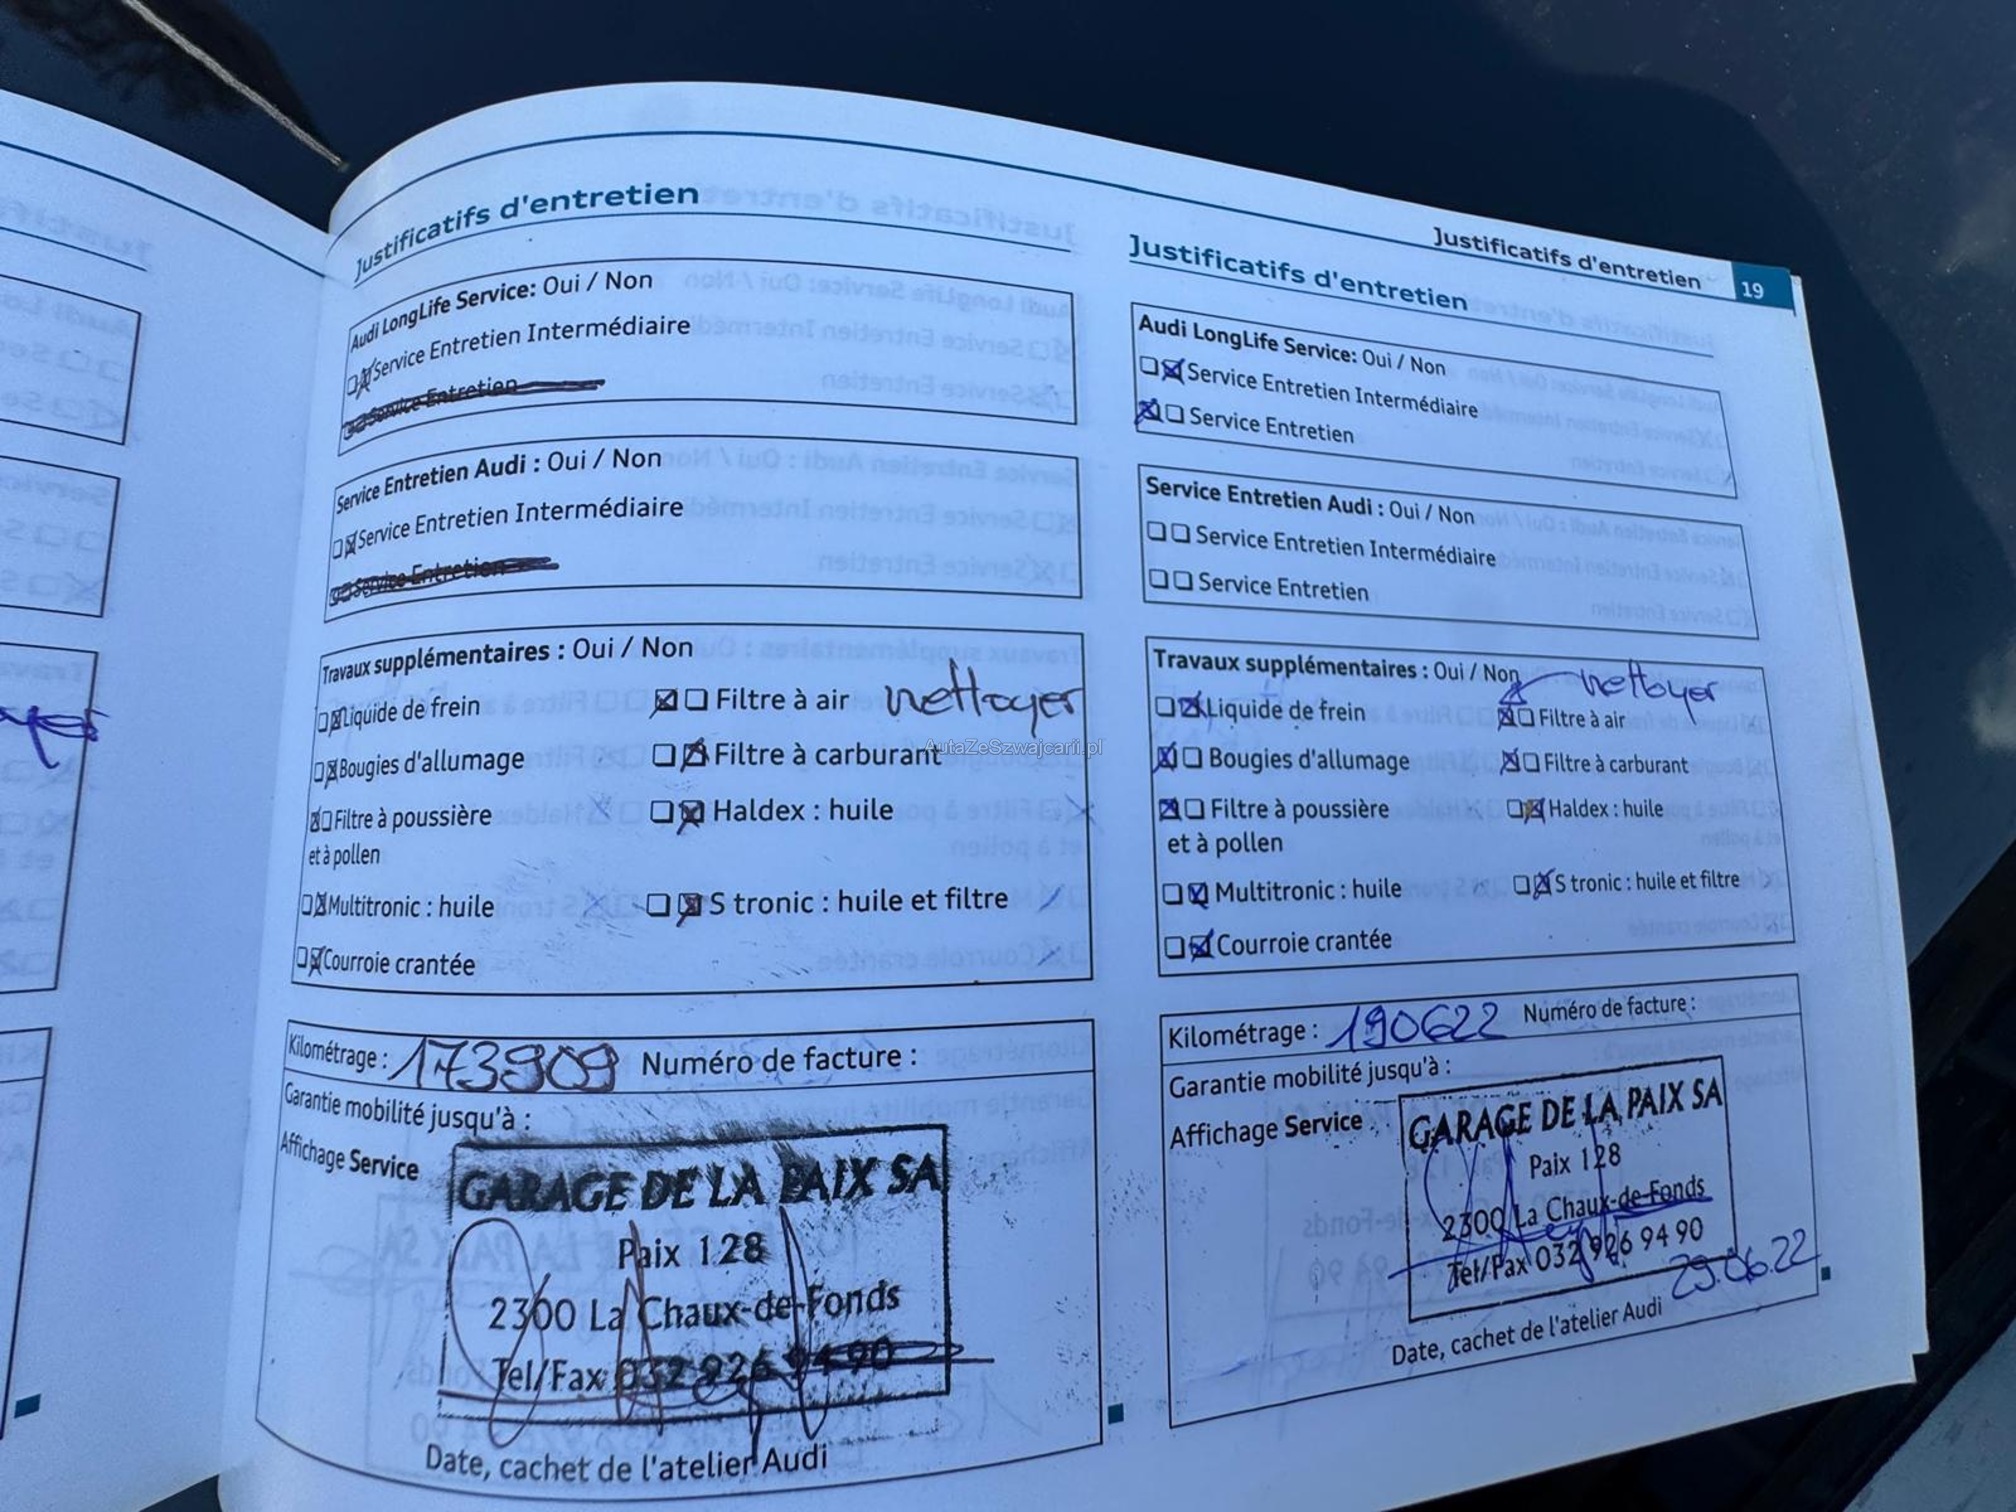 Justificatifs d'entretien
19
Justificatifs d'entretien
Audi LongLife Service: Oui / Non
Service Entretien Intermédiaire
Service Entretien
Service Entretien Audi : Oui / Non
Service Entretien Intermédiaire
Service Entretien
Travaux supplémentaires : Oui / Non
Liquide de frein
Filtre à air nettoyer
Bougies d'allumage
Filtre à carburant
Filtre à poussière
et à pollen
Haldex : huile
Multitronic : huile
S tronic : huile et filtre
Courroie crantée
Kilométrage : 173909 Numéro de facture :
Garantie mobilité jusqu'à :
Affichage Service
GARAGE DE LA PAIX SA
Paix 128
2300 La Chaux-de-Fonds
Tel/Fax 032 926 94 90
Date, cachet de l'atelier Audi
Justificatifs d'entretien
Audi LongLife Service: Oui / Non
Service Entretien Intermédiaire
Service Entretien
Service Entretien Audi : Oui / Non
Service Entretien Intermédiaire
Service Entretien
Travaux supplémentaires : Oui / Non
nettoyer
Liquide de frein
Filtre à air
Bougies d'allumage
Filtre à carburant
Filtre à poussière
et à pollen
Haldex : huile
Multitronic : huile
S tronic : huile et filtre
Courroie crantée
Kilométrage : 190622 Numéro de facture :
Garantie mobilité jusqu'à :
Affichage Service
GARAGE DE LA PAIX SA
Paix 128
2300 La Chaux-de-Fonds
Tel/Fax 032 926 94 90
29.06.22
Date, cachet de l'atelier Audi
AutaZeSzwajcarii.pl